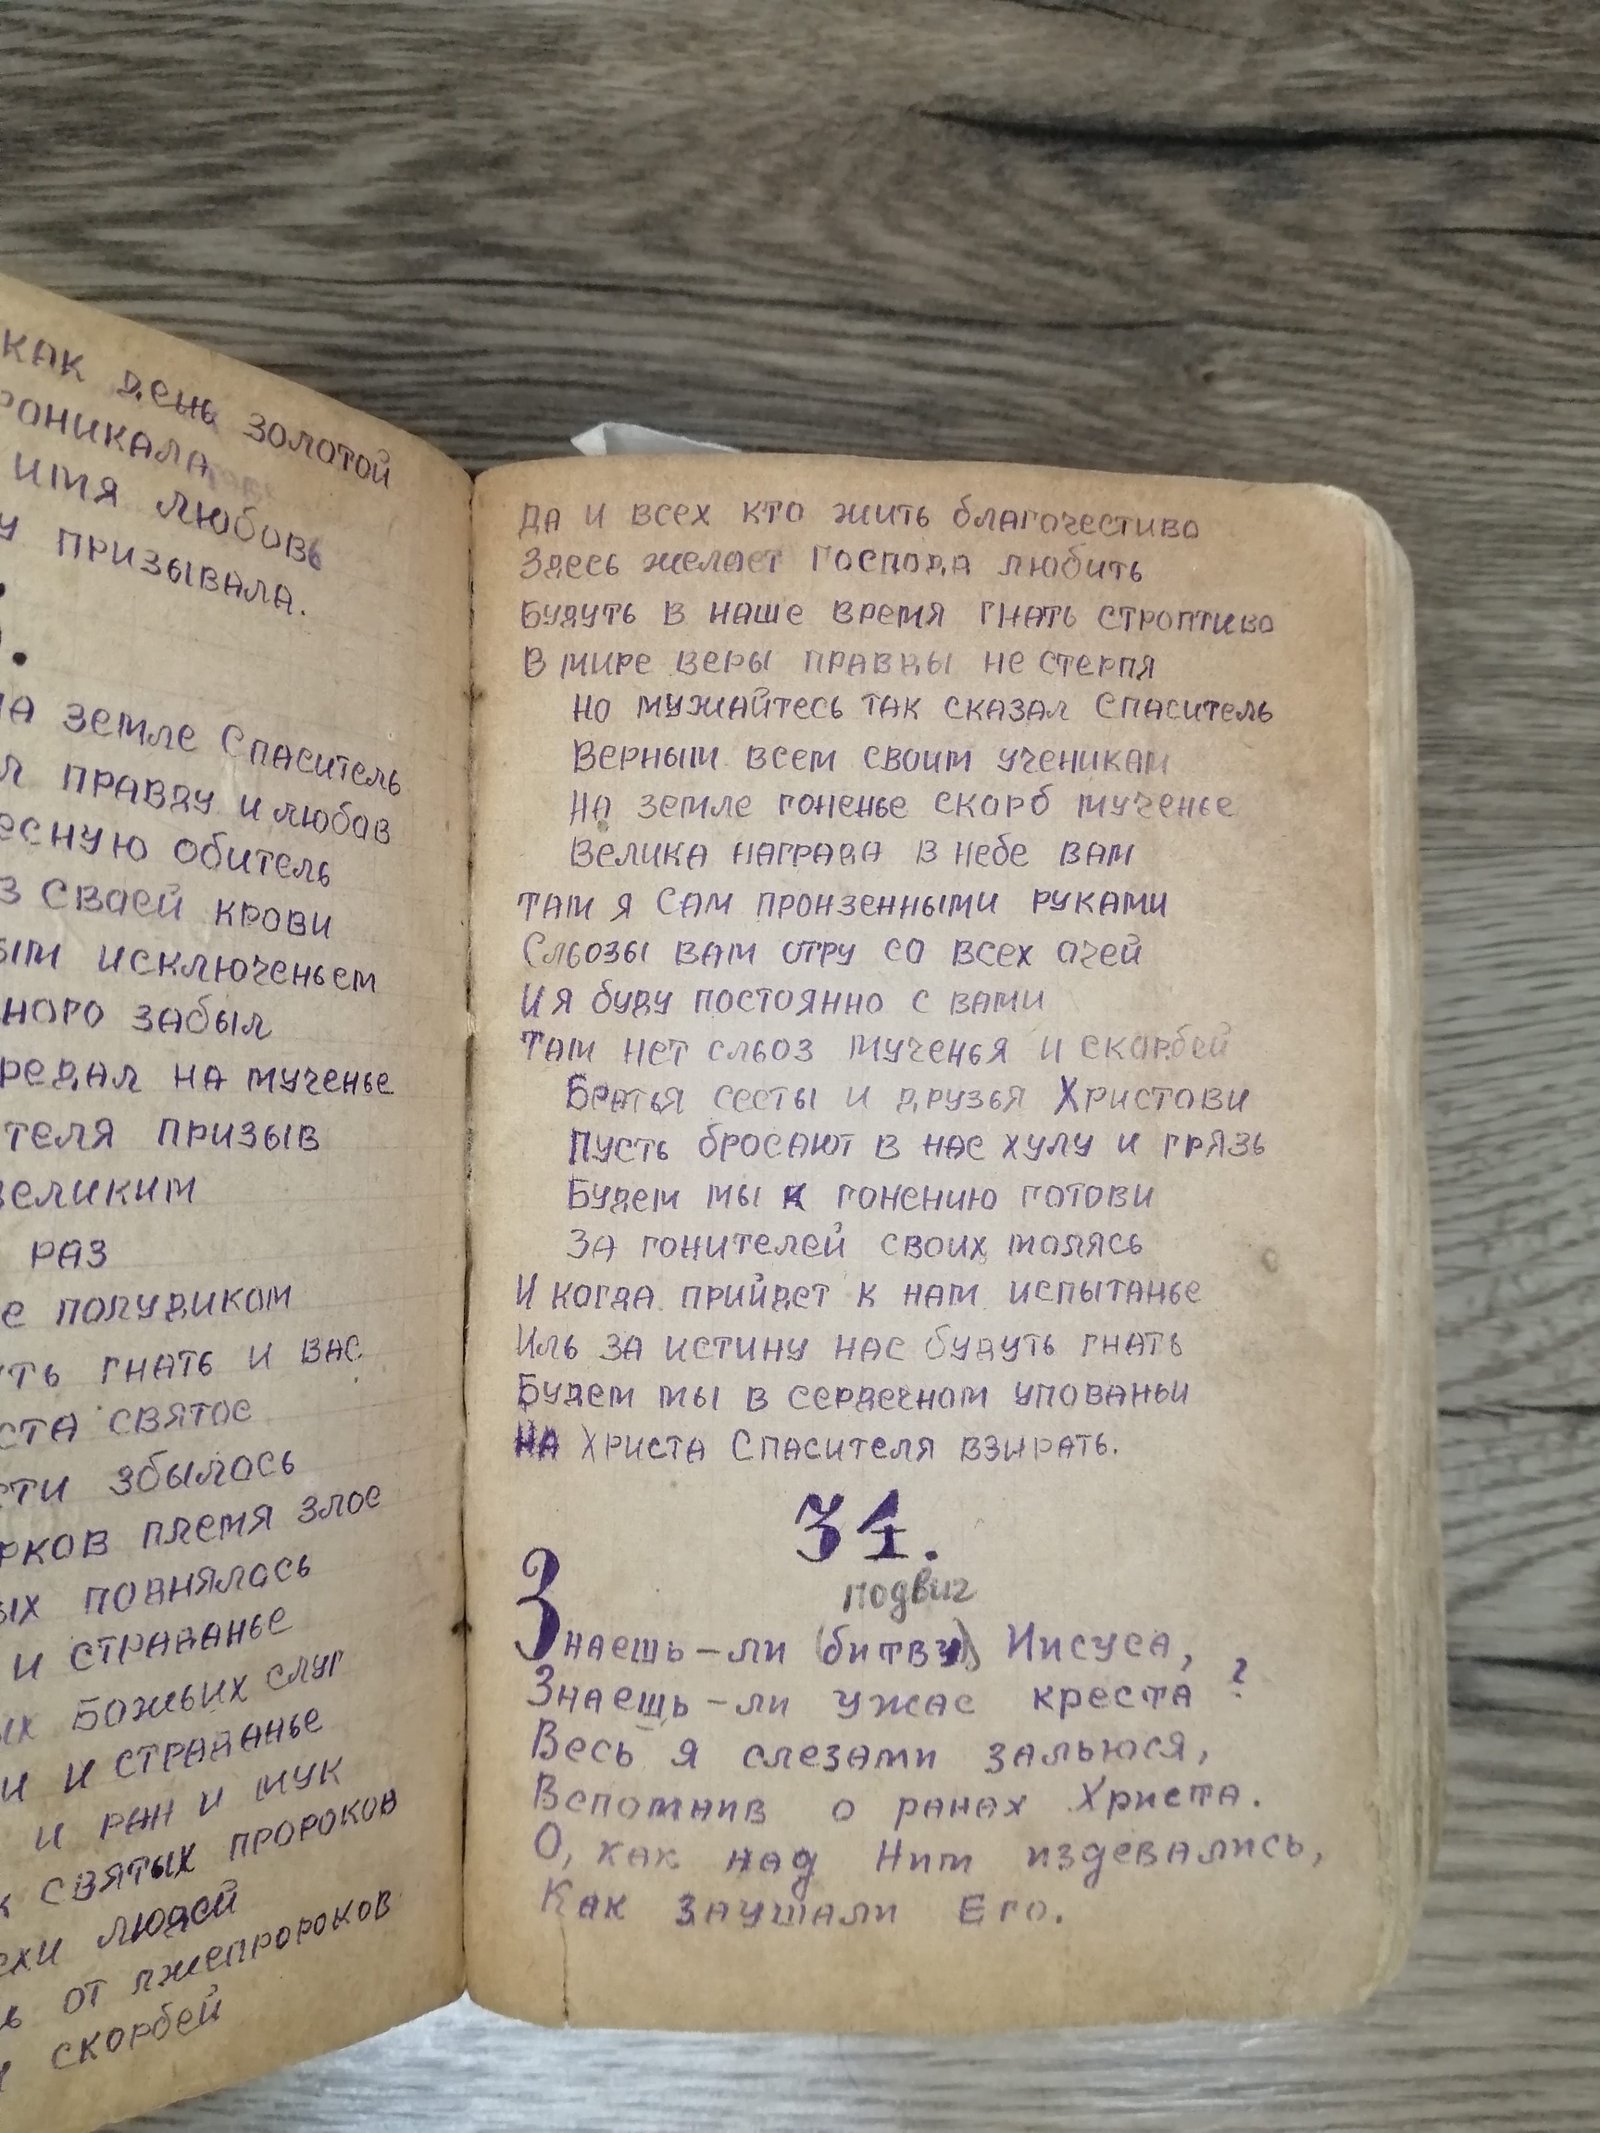 как день золотой
роникала
имя любовь
у призывала.
на земле Спаситель
л правду и любов
есную обитель
з сваей крови
ым исключеньем
ного забыл
редал на мученье
теля призыв
великим
раз
е полудиком
уть гнать и вас.
ста святое
сти збылось
рков племя злое
ых поднялось
и страданье
ых Божьих слуг
и и страданье
и ран и мук
к святых пророков
ехи людей
ь от лжепророков
и скорбей
да и всех кто жить благочестиво
Здесь желает Господа любить
Будуть в наше время гнать строптиво
В мире веры правды не стерпя
Но мужайтесь так сказал Спаситель
Верным всем своим ученикам
На земле гоненье скорб мученье
Велика награда в небе вам
Там я Сам пронзенными руками
Сльозы вам отру со всех очей
И я буду постоянно с вами
Там нет сльоз мученья и скорбей
Братья сесты и друзья Христови
Пусть бросают в нас хулу и грязь
Будем мы к гонению готови
За гонителей своих молясь
И когда прийдет к нам испытанье
Иль за истину нас будуть гнать
Будем мы в сердечном упованьи
На Христа Спасителя взирать.
31.
подвиг
Знаешь-ли (битву) Иисуса,
Знаешь-ли ужас креста ?
Весь я слезами зальюся,
Вспомнив о ранах Христа.
О, как над Ним издевались,
Как заушали Его.